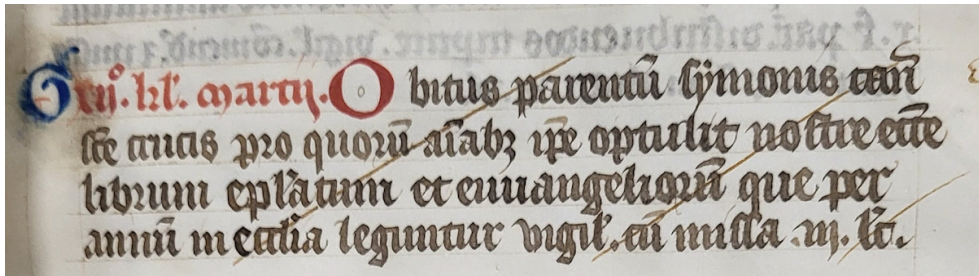 G xiiº. kl'. martii. Obitus parentū sẏmonis can̄
sc̄e crucis pro quorū aīabꝫ ip̄e optulit nostre ecc̄e
librum ep̄laꝝum et euuangeliorū que per
annū in eccl̄ia leguntur vigil'. cū missa .iij. lc̄.